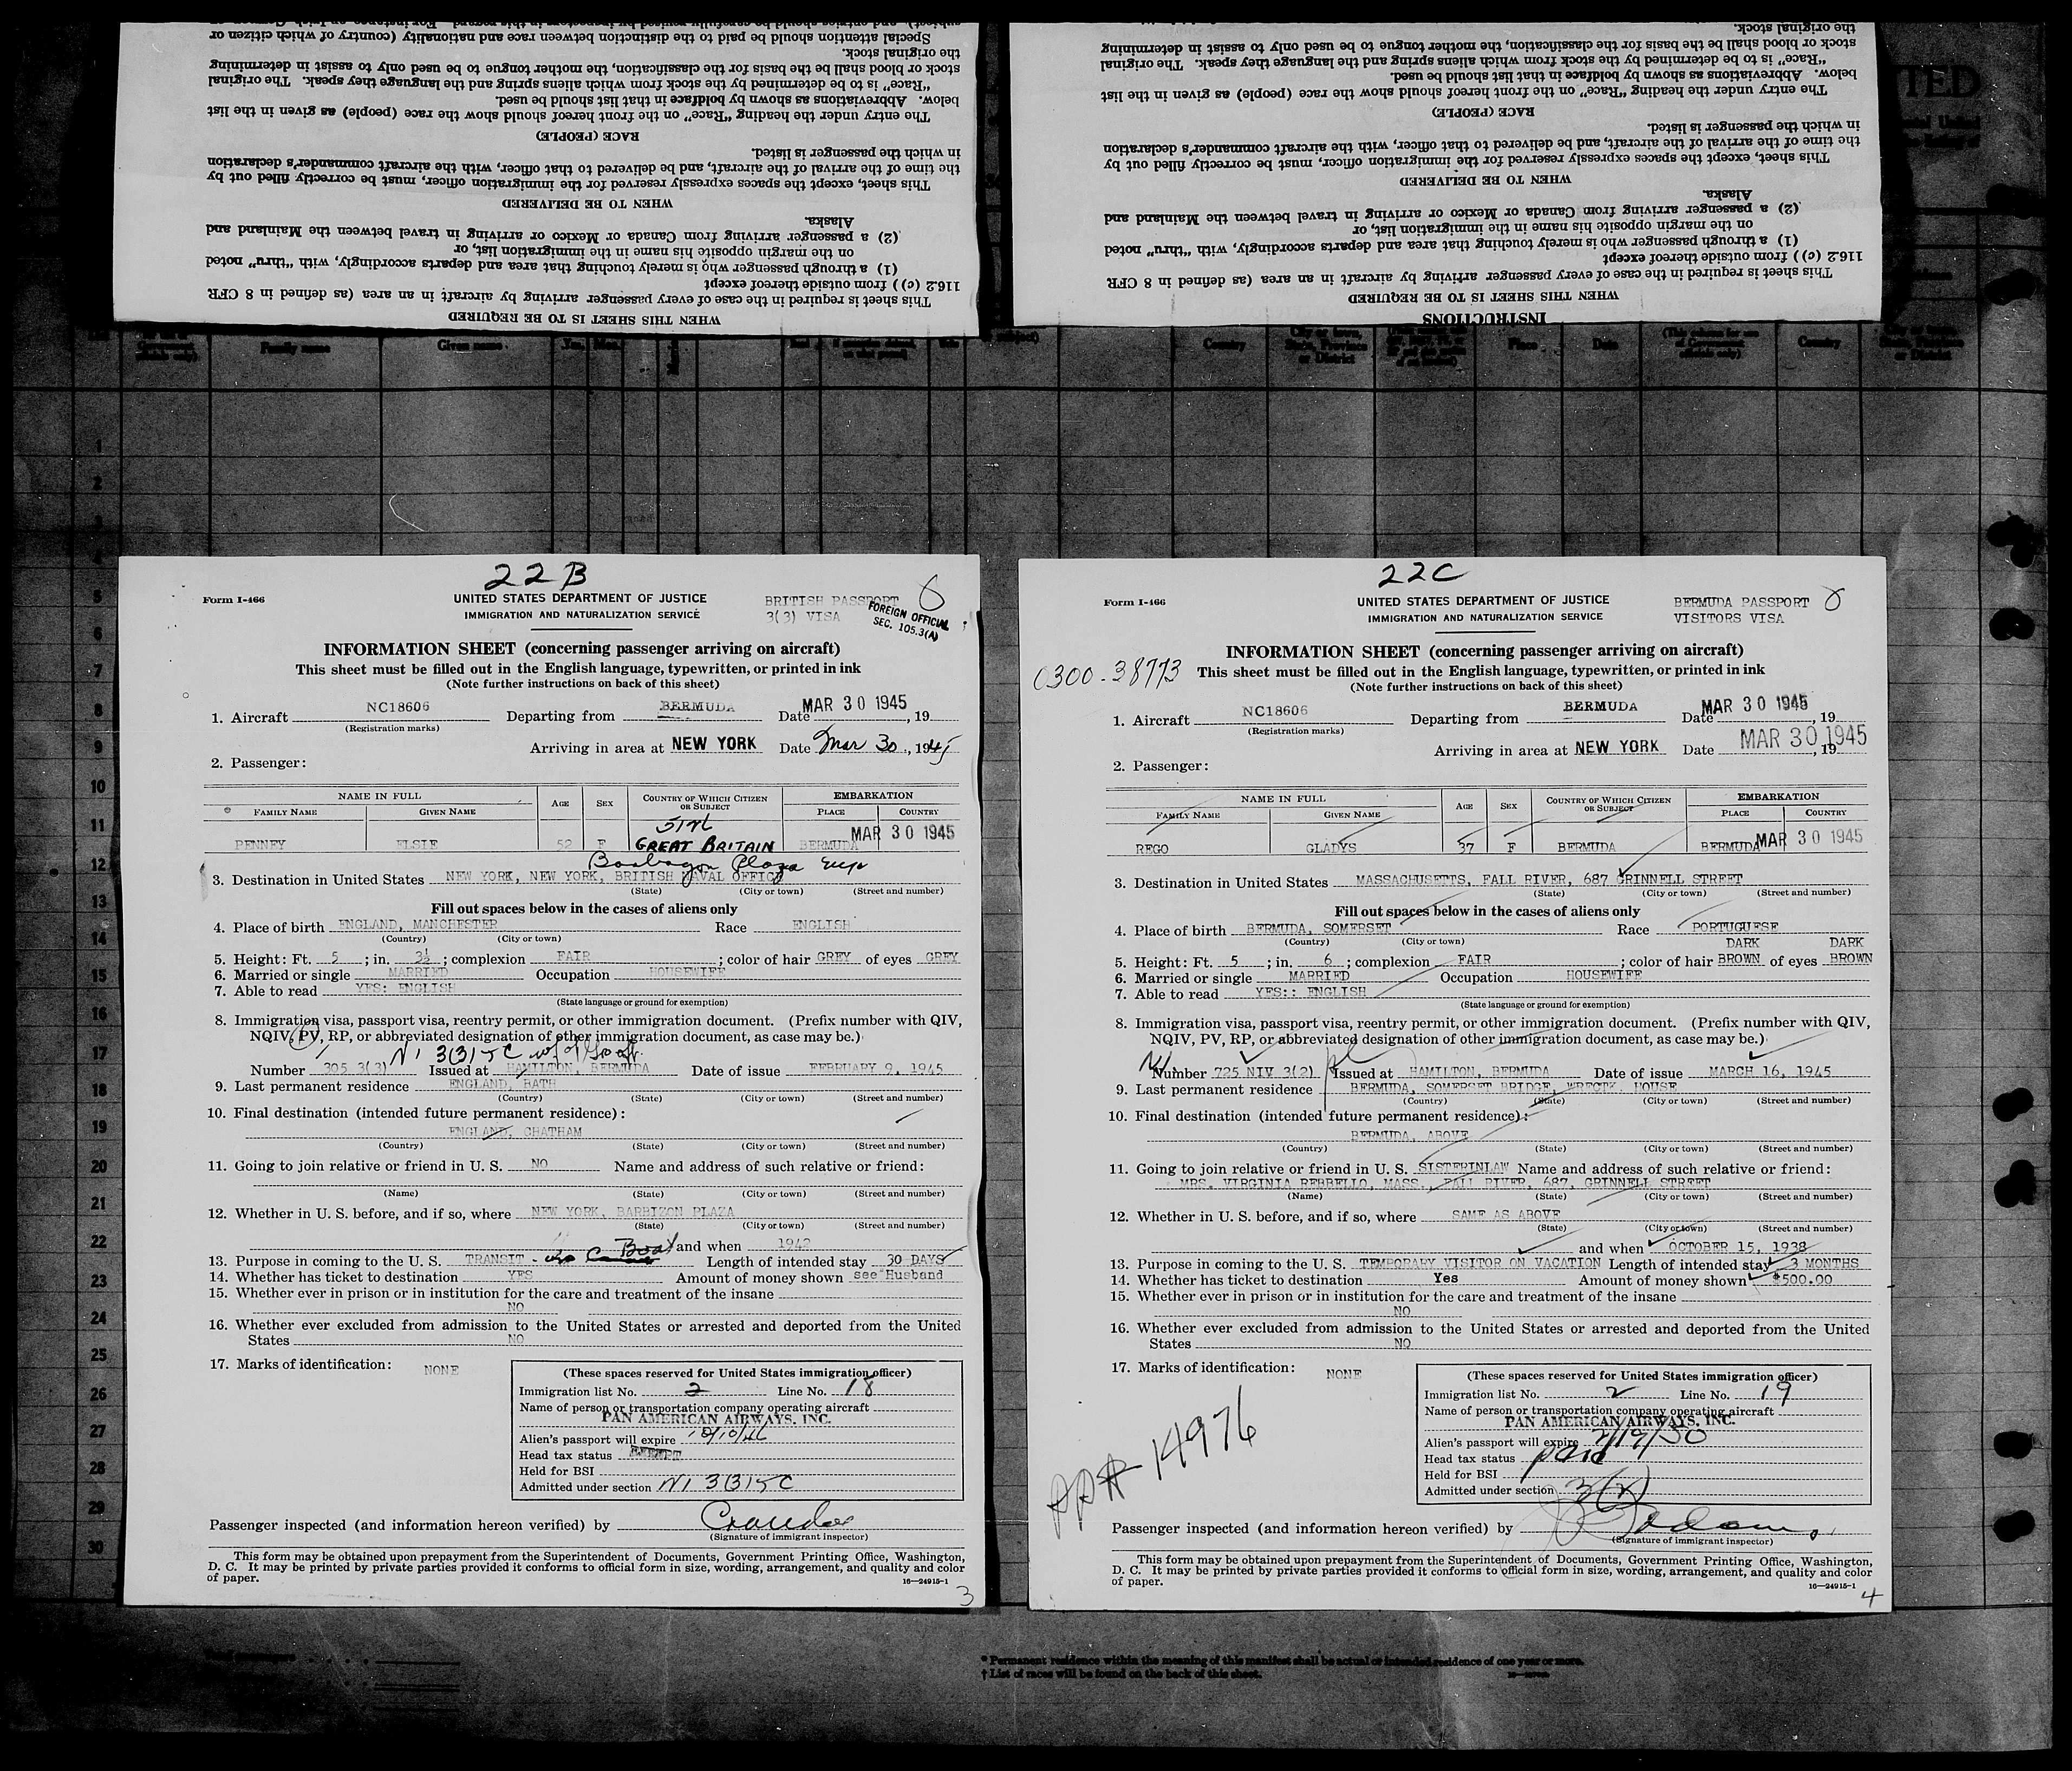 Special attention should be paid to the distinction between race and nationality (country of which citizen or
the original stock.
stock or blood shall be the basis for the classification, the mother tongue to be used only to assist in determining
"Race" is to be determined by the stock from which aliens spring and the language they speak. The original
below. Abbreviations as shown by boldface in that list should be used.
The entry under the heading "Race" on the front hereof should show the race (people) as given in the list
RACE (PEOPLE)
in which the passenger is listed.
the time of the arrival of the aircraft, and be delivered to that officer, with the aircraft commander's declaration
This sheet, except the spaces expressly reserved for the immigration officer, must be correctly filled out by
WHEN TO BE DELIVERED
Alaska.
(2) a passenger arriving from Canada or Mexico or arriving in travel between the Mainland and
on the margin opposite his name in the immigration list, or
(1) a through passenger who is merely touching that area and departs accordingly, with "thru" noted
116.2 (c) ) from outside thereof except
This sheet is required in the case of every passenger arriving by aircraft in an area (as defined in 8 CFR
WHEN THIS SHEET IS TO BE REQUIRED
the original stock.
stock or blood shall be the basis for the classification, the mother tongue to be used only to assist in determining
"Race" is to be determined by the stock from which aliens spring and the language they speak. The original
below. Abbreviations as shown by boldface in that list should be used.
The entry under the heading "Race" on the front hereof should show the race (people) as given in the list
RACE (PEOPLE)
in which the passenger is listed.
the time of the arrival of the aircraft, and be delivered to that officer, with the aircraft commander's declaration
This sheet, except the spaces expressly reserved for the immigration officer, must be correctly filled out by
WHEN TO BE DELIVERED
Alaska.
(2) a passenger arriving from Canada or Mexico or arriving in travel between the Mainland and
on the margin opposite his name in the immigration list, or
(1) a through passenger who is merely touching that area and departs accordingly, with "thru" noted
116.2 (c) ) from outside thereof except
This sheet is required in the case of every passenger arriving by aircraft in an area (as defined in 8 CFR
WHEN THIS SHEET IS TO BE REQUIRED
INSTRUCTIONS
TED
Family name Given name Yrs. Mos.
Country City or town, State, Province or District Place Date (This column for use of Government officials only) Country City or town, State, Province or District
1
2
3
4
5
6
7
8
9
10
11
12
13
14
15
16
17
18
19
20
21
22
23
24
25
26
27
28
29
30
22B
Form I-466
UNITED STATES DEPARTMENT OF JUSTICE
IMMIGRATION AND NATURALIZATION SERVICE
BRITISH PASSPORT
3(3) VISA
FOREIGN OFFICIAL
SEC. 105.3(A)
INFORMATION SHEET (concerning passenger arriving on aircraft)
This sheet must be filled out in the English language, typewritten, or printed in ink
(Note further instructions on back of this sheet)
1. Aircraft NC18606 Departing from BERMUDA Date MAR 30 1945, 19
(Registration marks)
Arriving in area at NEW YORK Date Mar 30, 1945
2. Passenger:
NAME IN FULL AGE SEX COUNTRY OF WHICH CITIZEN OR SUBJECT EMBARKATION
FAMILY NAME GIVEN NAME PLACE COUNTRY
PENNEY ELSIE 52 F GREAT BRITAIN BERMUDA MAR 30 1945
Plaza
3. Destination in United States NEW YORK, NEW YORK, BRITISH NAVAL OFFICE
(State) (City or town) (Street and number)
Fill out spaces below in the cases of aliens only
4. Place of birth ENGLAND, MANCHESTER Race ENGLISH
(Country) (City or town)
5. Height: Ft. 5 ; in. 3½ ; complexion FAIR ; color of hair GREY of eyes GREY
6. Married or single MARRIED Occupation HOUSEWIFE
7. Able to read YES: ENGLISH
(State language or ground for exemption)
8. Immigration visa, passport visa, reentry permit, or other immigration document. (Prefix number with QIV,
NQIV, PV, RP, or abbreviated designation of other immigration document, as case may be.)
Number 305 3(3) Issued at HAMILTON, BERMUDA Date of issue FEBRUARY 9, 1945
9. Last permanent residence ENGLAND, BATH
(Country) (State) (City or town) (Street and number)
10. Final destination (intended future permanent residence):
ENGLAND, CHATHAM
(Country) (State) (City or town) (Street and number)
11. Going to join relative or friend in U. S. NO Name and address of such relative or friend:
(Name) (State) (City or town) (Street and number)
12. Whether in U. S. before, and if so, where NEW YORK, BARBIZON PLAZA
(State) (City or town) (Street and number)
Boat and when 1942
13. Purpose in coming to the U. S. TRANSIT - Length of intended stay 30 DAYS
14. Whether has ticket to destination YES Amount of money shown see Husband
15. Whether ever in prison or in institution for the care and treatment of the insane
NO
16. Whether ever excluded from admission to the United States or arrested and deported from the United
States NO
17. Marks of identification: NONE
(These spaces reserved for United States immigration officer)
Immigration list No. 2 Line No. 18
Name of person or transportation company operating aircraft
PAN AMERICAN AIRWAYS, INC.
Alien's passport will expire 10/10/46
Head tax status EXEMPT
Held for BSI
Admitted under section
Passenger inspected (and information hereon verified) by
(Signature of immigrant inspector)
This form may be obtained upon prepayment from the Superintendent of Documents, Government Printing Office, Washington,
D. C. It may be printed by private parties provided it conforms to official form in size, wording, arrangement, and quality and color
of paper.
16—24915-1
3
22C
Form I-466
UNITED STATES DEPARTMENT OF JUSTICE
IMMIGRATION AND NATURALIZATION SERVICE
BERMUDA PASSPORT
VISITORS VISA
INFORMATION SHEET (concerning passenger arriving on aircraft)
0300-38773
This sheet must be filled out in the English language, typewritten, or printed in ink
(Note further instructions on back of this sheet)
1. Aircraft NC18606 Departing from BERMUDA Date MAR 30 1945, 19
(Registration marks)
Arriving in area at NEW YORK Date MAR 30 1945, 19
2. Passenger:
NAME IN FULL AGE SEX COUNTRY OF WHICH CITIZEN OR SUBJECT EMBARKATION
FAMILY NAME GIVEN NAME PLACE COUNTRY
REGO GLADYS 37 F BERMUDA BERMUDA MAR 30 1945
3. Destination in United States MASSACHUSETTS, FALL RIVER, 687 GRINNELL STREET
(State) (City or town) (Street and number)
Fill out spaces below in the cases of aliens only
4. Place of birth BERMUDA, SOMERSET Race PORTUGUESE
(Country) (City or town) DARK DARK
5. Height: Ft. 5 ; in. 6 ; complexion FAIR ; color of hair BROWN of eyes BROWN
6. Married or single MARRIED Occupation HOUSEWIFE
7. Able to read YES:: ENGLISH
(State language or ground for exemption)
8. Immigration visa, passport visa, reentry permit, or other immigration document. (Prefix number with QIV,
NQIV, PV, RP, or abbreviated designation of other immigration document, as case may be.)
Number 725 NIV 3(2) Issued at HAMILTON, BERMUDA Date of issue MARCH 16, 1945
9. Last permanent residence BERMUDA, SOMERSET BRIDGE, WRECTK. HOUSE
(Country) (State) (City or town) (Street and number)
10. Final destination (intended future permanent residence):
BERMUDA, ABOVE
(Country) (State) (City or town) (Street and number)
11. Going to join relative or friend in U. S. SISTERINLAW Name and address of such relative or friend:
MRS. VIRGINIA REBBELLO, MASS., FALL RIVER, 687, GRINNELL STREET
(Name) (State) (City or town) (Street and number)
12. Whether in U. S. before, and if so, where SAME AS ABOVE
(State) (City or town) (Street and number)
and when OCTOBER 15, 1938
13. Purpose in coming to the U. S. TEMPORARY VISITOR ON VACATION Length of intended stay 3 MONTHS
14. Whether has ticket to destination Yes Amount of money shown $500.00
15. Whether ever in prison or in institution for the care and treatment of the insane
NO
16. Whether ever excluded from admission to the United States or arrested and deported from the United
States NO
17. Marks of identification: NONE
(These spaces reserved for United States immigration officer)
Immigration list No. 2 Line No. 19
Name of person or transportation company operating aircraft
PAN AMERICAN AIRWAYS, INC.
Alien's passport will expire
Head tax status paid
Held for BSI
Admitted under section 3(2)
14976
Passenger inspected (and information hereon verified) by
(Signature of immigrant inspector)
This form may be obtained upon prepayment from the Superintendent of Documents, Government Printing Office, Washington,
D. C. It may be printed by private parties provided it conforms to official form in size, wording, arrangement, and quality and color
of paper.
16—24915-1
4
* Permanent residence within the meaning of this manifest shall be actual or intended residence of one year or more.
† List of races will be found on the back of this sheet.